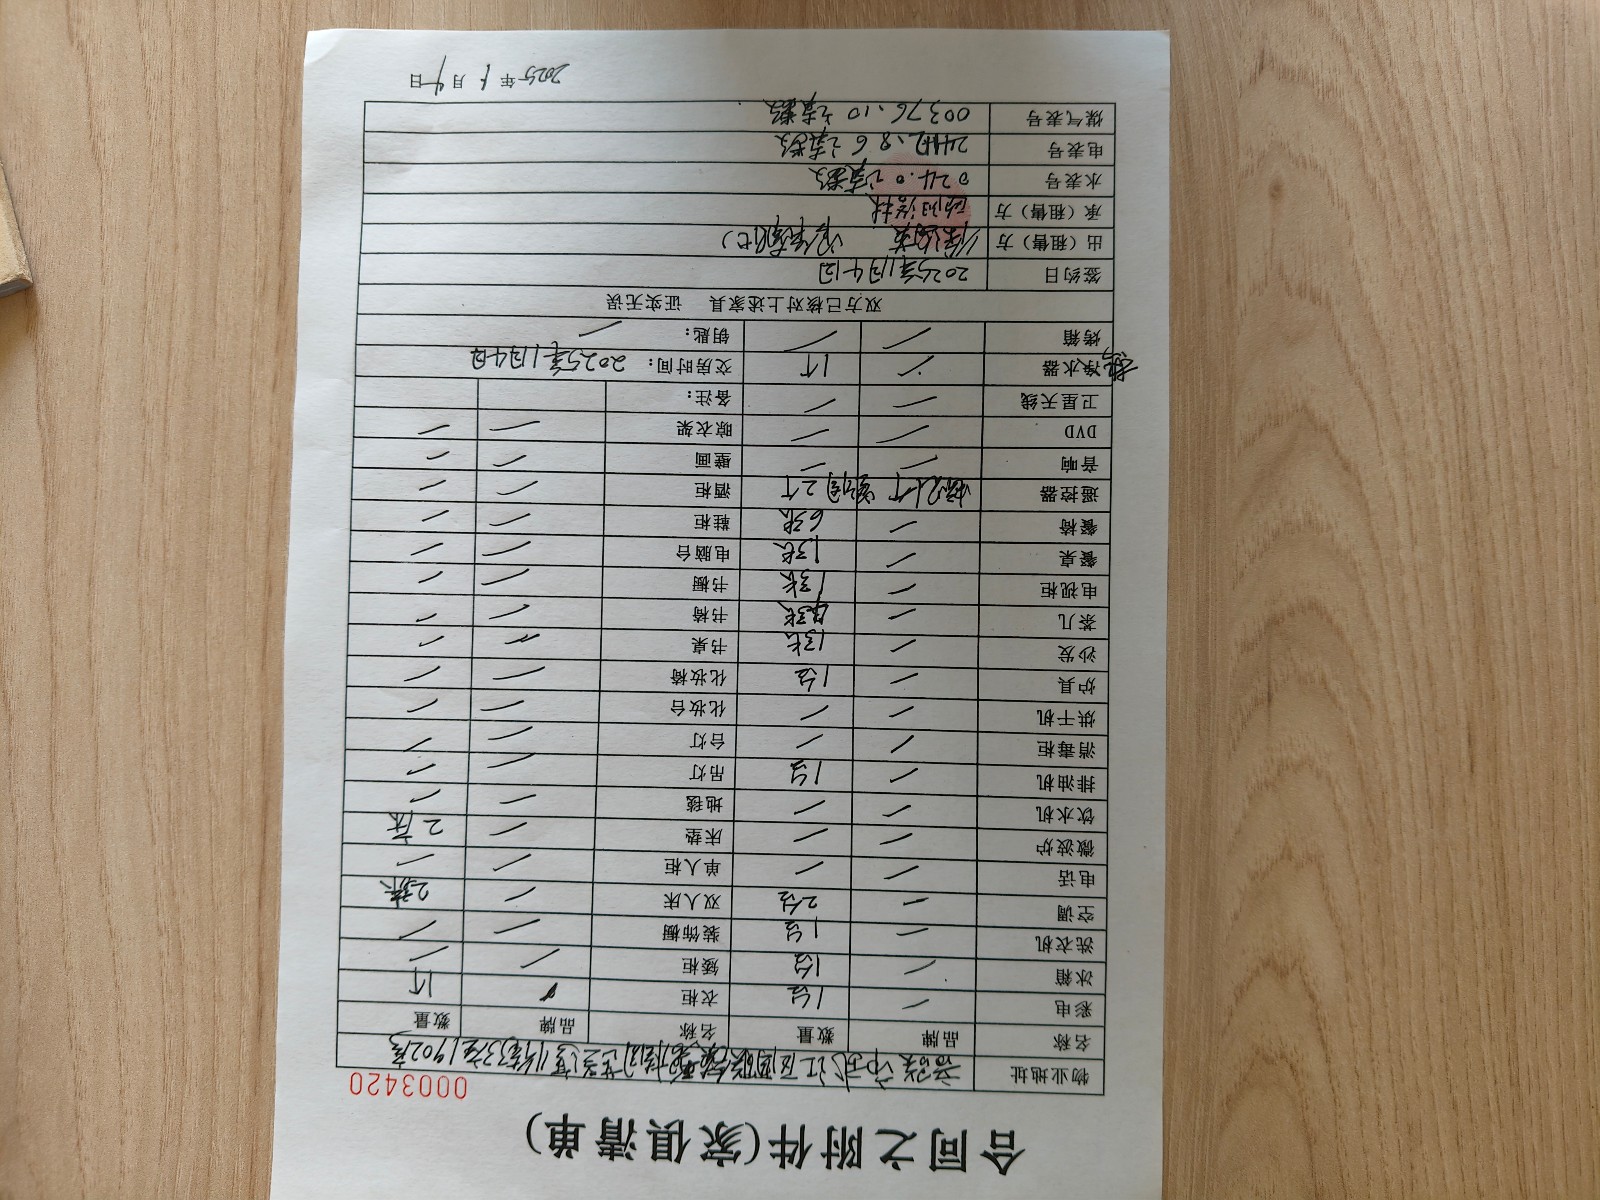 合同之附件(家俱清单)
0003420
物业地址 武江区 33座1902房
名称 品牌 数量 名称 品牌 数量
彩电 1台 衣柜 1个
冰箱 1台 矮柜
洗衣机 1台 装饰橱
空调 2台 双人床 2张
电话 单人柜
微波炉 床垫 2床
饮水机 地毯
排油机 1台 吊灯
消毒柜 台灯
烘干机 化妆台
炉具 1台 化妆椅
沙发 1张 书桌
茶几 书椅
电视柜 1张 书橱
餐桌 1张 电脑台
餐椅 6张 鞋柜
遥控器 2个 酒柜
音响 壁画
DVD 晾衣架
卫星天线 备注:
热 净水器 1个 交房时间: 2025年1月4日
烤箱 钥匙:
双方已核对上述家具 证实无误
签约日 2025年1月4日
出(租售)方
承(租售)方
水表号 024.0 读数
电表号 读数
煤气表号 00376.10 读数
2025年1月4日